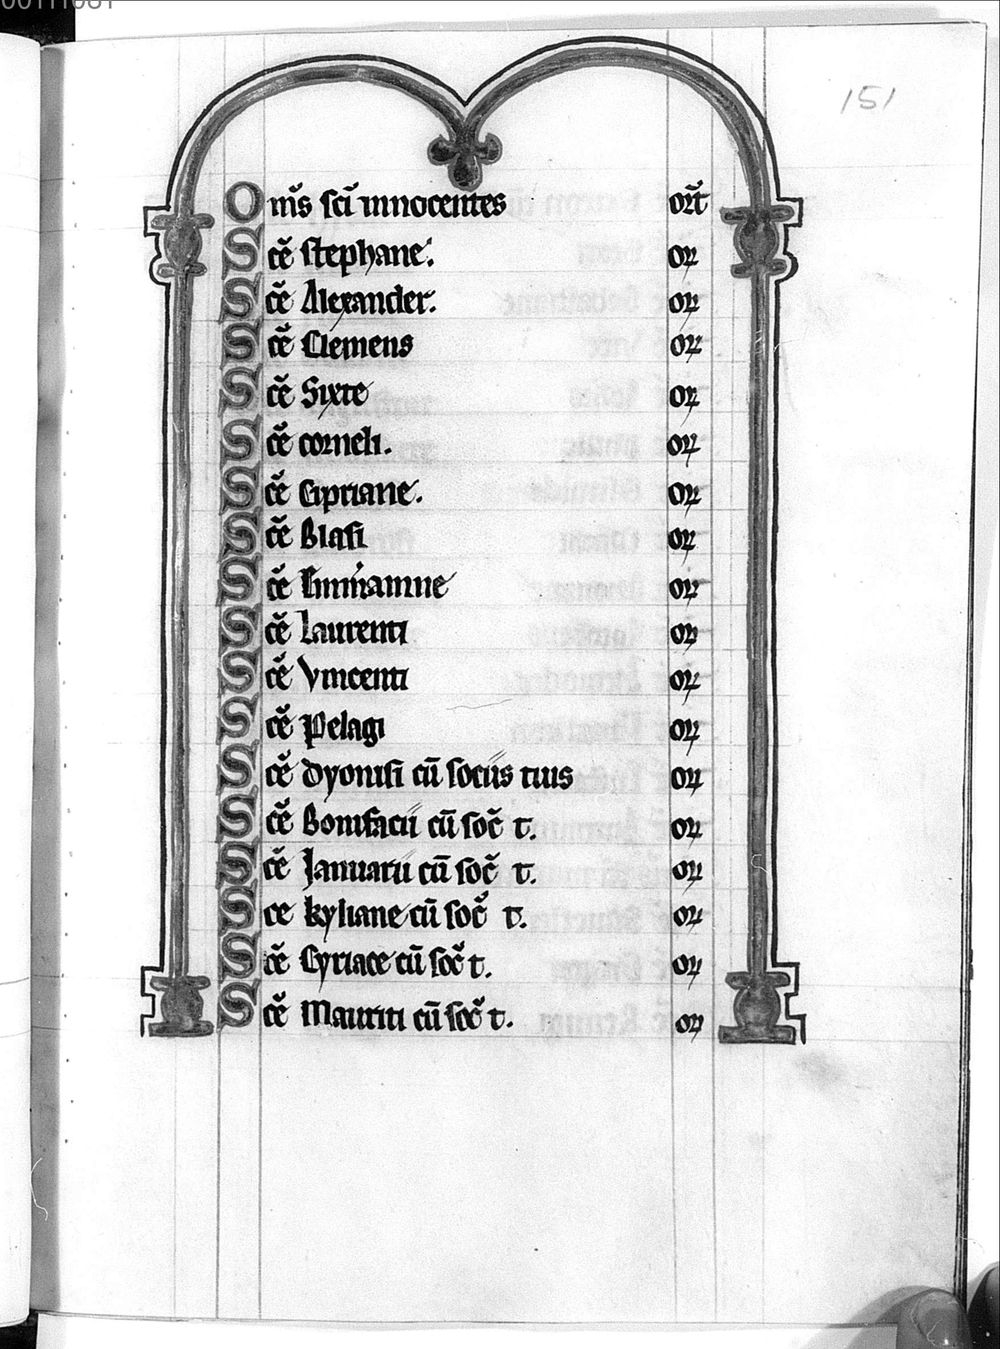 00111081
151
Om̄s sc̄i innocentes or̄t
Sc̄e stephane. or
Sc̄e Alexander. or
Sc̄e Clemens or
Sc̄e Sixte or
Sc̄e corneli. or
Sc̄e Cipriane. or
Sc̄e Blasi or
Sc̄e or
Sc̄e Laurenti or
Sc̄e Vincenti or
Sc̄e Pelagi or
Sc̄e Dyonisi cū sociis tuis or
Sc̄e Bonifacii cū soc̄ t. or
Sc̄e Januarii cū soc̄ t. or
Sce kyliane cū soc̄ t. or
Sc̄e Cyriace cū soc̄ t. or
Sc̄e Mauriti cū soc̄ t. or